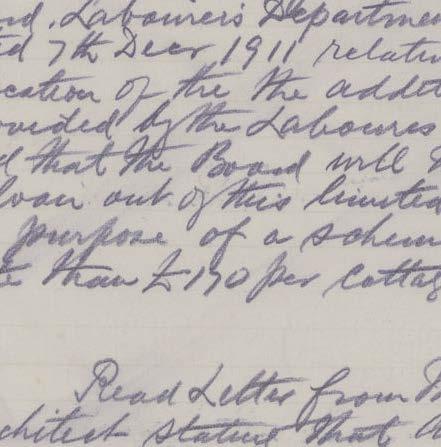 nd. Labourers Departmen
ed 7th Decr 1911 relativ
ocation of the the addit
ovided by the Labourers
d that the Board will
loan out of this limited
purpose of a schem
te than £170 per Cottag
Read Letter from M
rchitect stating that